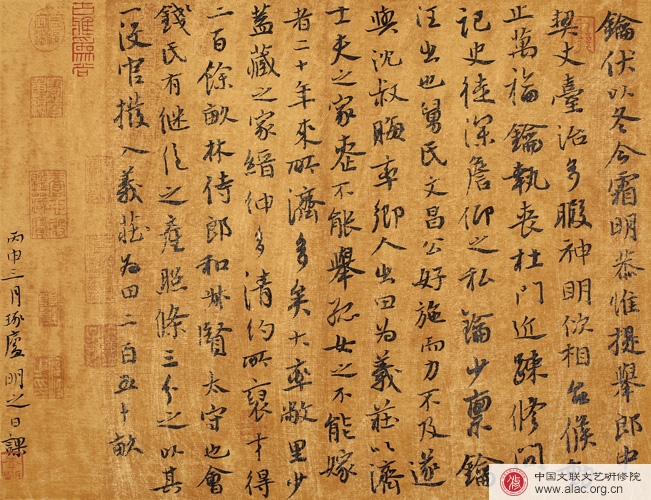 鑰伏以冬令霜明恭惟提舉郎中
契丈臺治多暇神明攸相台候
止萬福鑰執喪杜門近疎修問
記史徒深詹仰之私鑰少稟鑰
汪出也舅氏文昌公好施而力不及遂
與沈叔晦率鄉人出田為義莊以濟
士夫之家喪不能舉孤女之不能嫁
者二十年來所濟多矣大率敝里少
蓋藏之家縉紳多清約所裒才得
二百餘畝林侍郎和叔賢太守也會
錢氏有继絕之產照條三分之以其
一没官撥入義莊為田二百五十畝
丙申三月琢廬明之日課
中国文联文艺研修院
www.alac.org.cn